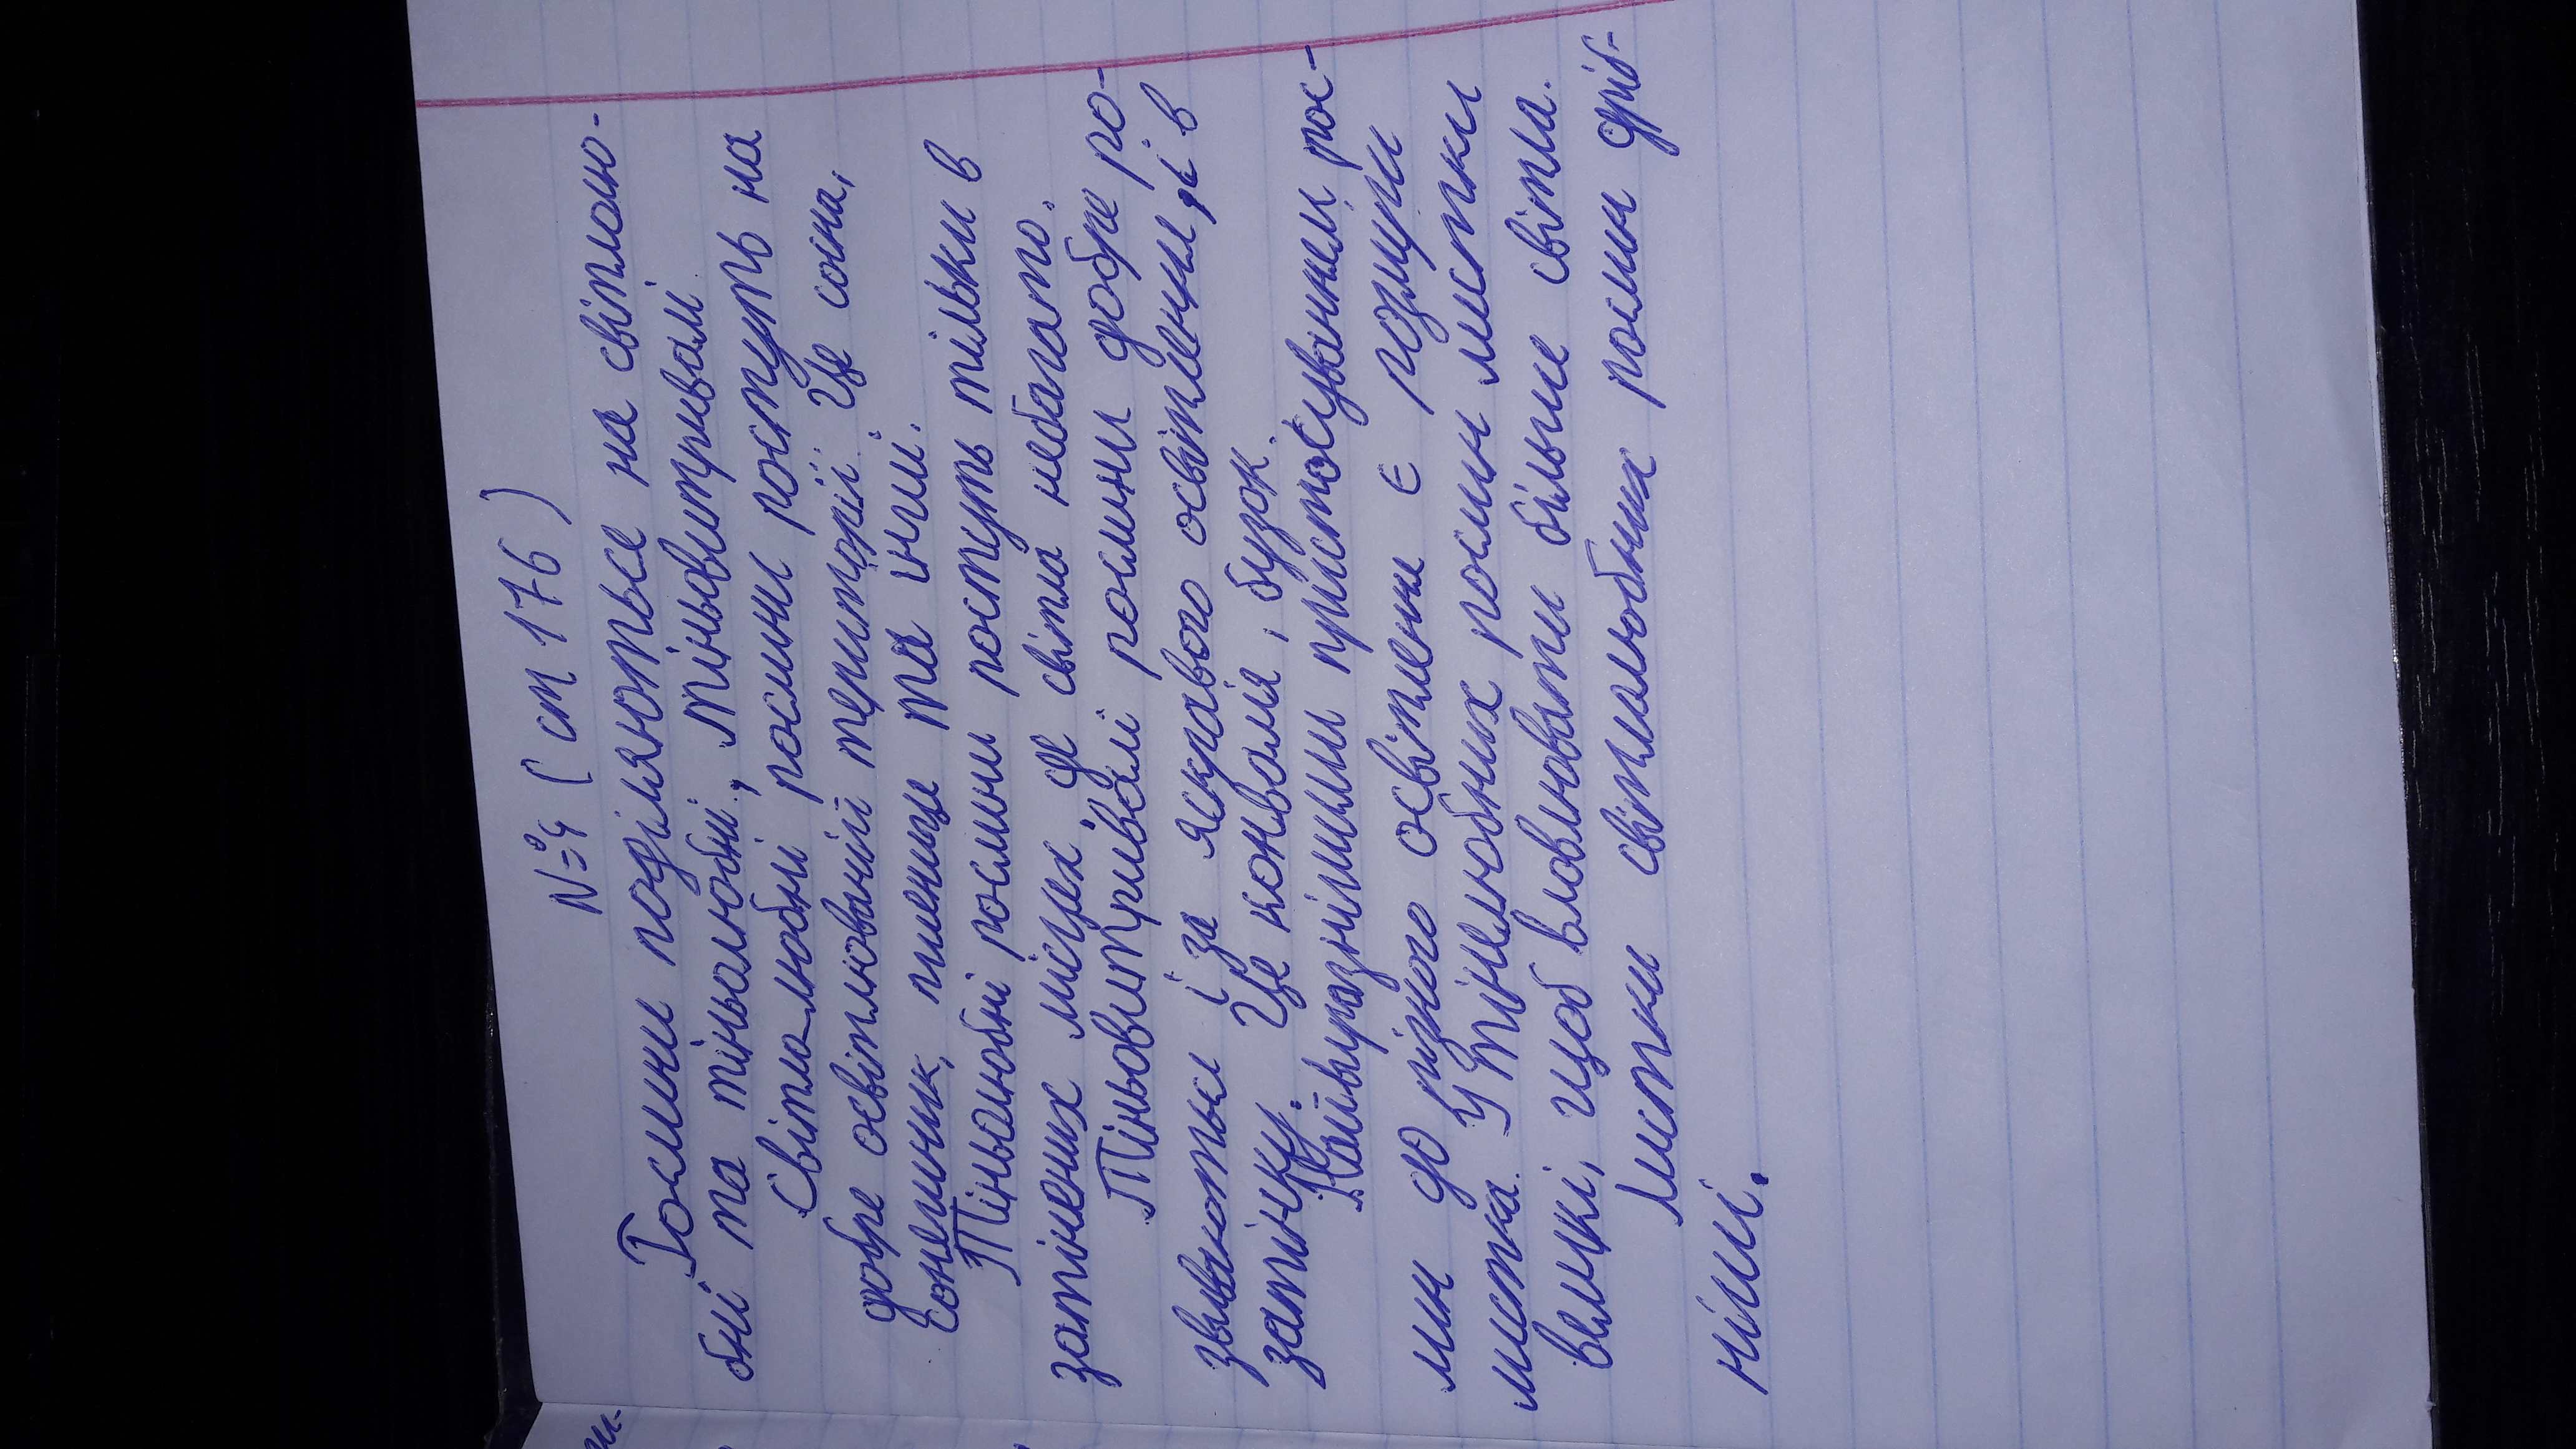 №4 (ст 176)
Рослини поділяютьсе на світлолю-
бні та тіньолюбні, тіньовитривалі.
Світло-любні рослини ростуть на
добре освітлюваній території. Це сосна,
сонешник, пшениця та інші.
Тіньолюбні рослини ростуть тільки в
затінених місцях, де світла небагато.
Тіньовитривалі рослини добре ро-
звиваються і за яскравого освітлення, і в
затінку. Це конвалія, бузок.
Найвиразнішими пристосуванням рос-
лин до різного освітлення є розміри
листка. У тінелюбних рослин листки
великі, щоб вловлювати більше світла.
Листки світлолюбних рослин дріб-
ніші.